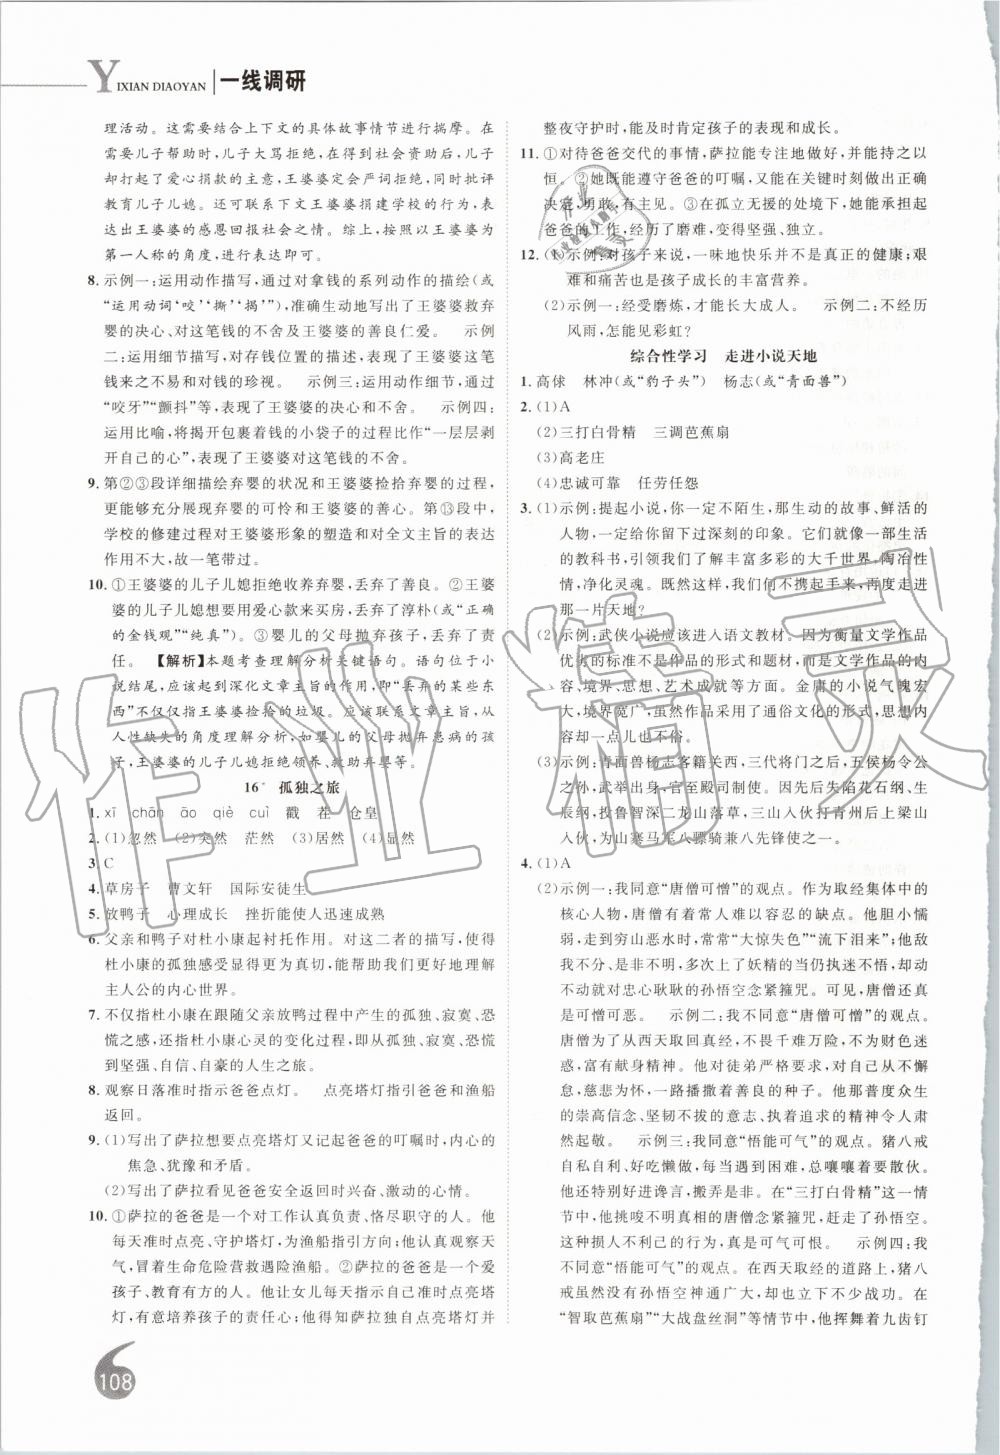 YIXIAN DIAOYAN 一线调研
理活动。这需要结合上下文的具体故事情节进行揣摩。在
需要儿子帮助时,儿子大骂拒绝,在得到社会资助后,儿子
却打起了爱心捐款的主意,王婆婆定会严词拒绝,同时批评
教育儿子儿媳。还可联系下文王婆婆捐建学校的行为,表
达出王婆婆的感恩回报社会之情。综上,按照以王婆婆的
第一人称的角度,进行表达即可。
8. 示例一:运用动作描写,通过对拿钱的系列动作的描绘(或
“运用动词‘咬’‘撕’‘揭’”),准确生动地写出了王婆婆救弃
婴的决心、对这笔钱的不舍及王婆婆的善良仁爱。 示例
二:运用细节描写,对存钱位置的描述,表现了王婆婆这笔
钱来之不易和对钱的珍视。 示例三:运用动作细节,通过
“咬牙”“颤抖”等,表现了王婆婆的决心和不舍。 示例四:
运用比喻,将揭开包裹着钱的小袋子的过程比作“一层层剥
开自己的心”,表现了王婆婆对钱的不舍。
9. 第②③段详细描绘弃婴的状况和王婆婆捡拾弃婴的过程,
更能够充分展现出弃婴的可怜和王婆婆的善心。第⑬段中,
学校的修建过程对王婆婆形象的塑造和对全文主旨的表达
作用不大,故一笔带过。
10. ①王婆婆的儿子儿媳拒绝收养弃婴,丢弃了善良。②王婆
婆的儿子儿媳想要用爱心款来买房,丢弃了淳朴(或“正确
的金钱观”“纯真”)。③婴儿的父母抛弃孩子,丢弃了责
任。 【解析】本题考查理解分析关键语句。语句位于小
说结尾,应该起到深化文章主旨的作用,即“丢弃的某些东
西”不仅仅指王婆婆捡拾的垃圾。应该联系文章主旨,从
人性缺失的角度理解分析,如婴儿的父母抛弃患病的孩
子,王婆婆的儿子儿媳拒绝收养、救助弃婴等。
16* 孤独之旅
1. xī chān āo qiè cuì 戳 茬 仓皇
2. (1)忽然 (2)突然 茫然 (3)居然 (4)显然
3. C
4. 草房子 曹文轩 国际安徒生
5. 放鸭子 心理成长 挫折能使人迅速成熟
6. 父亲和鸭子对杜小康起衬托作用。对这二者的描写,使得
杜小康的孤独感受显得更为真切,能帮助我们更好地理解
主人公的内心世界。
7. 不仅指杜小康在跟随父亲放鸭过程中产生的孤独、寂寞、恐
慌之感,还指杜小康心灵的变化过程,即由孤独、寂寞、恐慌
到坚强、自信、自豪的人生之旅。
8. 观察日落准时指示爸爸点灯。 点亮塔灯指引爸爸和渔船
返回。
9. (1)写出了萨拉想要点亮塔灯又记起爸爸的叮嘱时,内心的
焦急、犹豫和矛盾。
(2)写出了萨拉看见爸爸安全返回时兴奋、激动的心情。
10. ①萨拉的爸爸是一个对工作认真负责、恪尽职守的人。他
每天准时点亮、守护塔灯,为渔船指引方向;他认真观察天
气,冒着生命危险营救遇险渔船。②萨拉的爸爸是一个爱
孩子、教育有方的人。他让女儿每天指示自己准时点亮塔
灯,有意培养孩子的责任心;他得知萨拉独自点亮塔灯且
整夜守护时,能及时肯定孩子的表现和成长。
11. ①对待爸爸交代的事情,萨拉能专注地做好,并持之以
恒。②她既能遵守爸爸的叮嘱,又能在关键时刻做出正确
决定,勇敢,有主见。③在孤立无援的处境下,她能承担起
爸爸的工作,经历了磨难,变得坚强、独立。
12. (1)示例:对孩子来说,一味地快乐并不是真正的健康;艰
难和痛苦也是孩子成长的丰富营养。
(2)示例一:经受磨炼,才能长大成人。 示例二:不经历
风雨,怎能见彩虹?
综合性学习 走进小说天地
1. 高俅 林冲(或“豹子头”) 杨志(或“青面兽”)
2. (1)A
(2)三打白骨精 三调芭蕉扇
(3)高老庄
(4)忠诚可靠 任劳任怨
3. (1)示例:提起小说,你一定不陌生,那生动的故事、鲜活的
人物,一定给你留下过深刻的印象。它们就像一部生活
的教科书,引领我们了解丰富多彩的大千世界,陶冶性
情,净化灵魂。既然这样,我们何不携起手来,再度走进
那一片天地?
(2)示例:武侠小说应该进入语文教材。因为衡量文学作品
优劣的标准不是作品的形式和题材,而是文学作品的内
容、境界、思想、艺术成就等方面。金庸的小说气魄宏
大,境界宽广,虽然作品采用了通俗文化的形式,思想内
容却一点儿也不俗。
(3)示例:青面兽杨志客籍关西,三代将门之后,五侯杨令公之
孙,武举出身,官至殿司制使。后因失陷花石纲、生
辰纲,投鲁智深二龙山落草,三山入伙打青州后上梁山
入伙,为山寨马军八骠骑兼八先锋使之一。
4. (1)A
(2)示例一:我同意“唐僧可憎”的观点。作为取经集体中的
核心人物,唐僧有着常人难以宽忍的缺点。他胆小懦
弱,走到穷山恶水时,常常“大惊失色”“流下泪来”;他人
妖不分,多次上了妖精的当仍执迷不悟,却动辄
就对忠心耿耿的孙悟空念紧箍咒。可见,唐僧还真
是可憎可恶。 示例二:我不同意“唐僧可憎”的观点。
唐僧为了从西天取回真经,不畏千难万险,不为财色迷
惑,以献身精神实践诺言。他对徒弟严格要求,不曾懈
怠,慈悲为怀,一路播撒着善良的种子。他那普度众生
的崇高信念、坚韧不拔的意志、执着追求的精神令人肃
然起敬。 示例三:我同意“悟能可气”的观点。猪八戒
自私自利,好吃懒做,每当遇到困难,总嚷嚷着要散伙。
他还特别好进谗言,搬弄是非。在“三打白骨精”这一情
节中,他挑唆不明真相的唐僧念紧箍咒,赶走了孙悟空。
这种损人不利己的行为,实在可气。 示例四:我不
同意“悟能可气”的观点。在西天取经的道路上,猪八
戒虽然没有孙悟空神通广大,却也立下不少战功。在
“智取芭蕉扇”“大战盘丝洞”等情节中,他挥舞着九齿钉
108